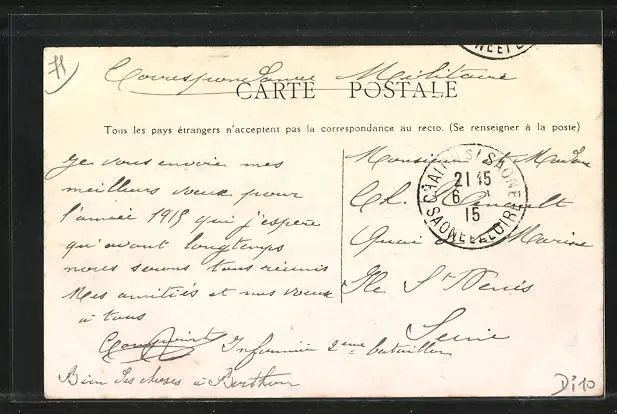 Correspondance Militaire
CARTE POSTALE
Tous les pays étrangers n'acceptent pas la correspondance au recto. (Se renseigner à la poste)
Je vous envoie mes
meilleurs vœux pour
l'année 1915 que j'espère
qu'avant longtemps
nous serons tous réunis
Mes amitiés et nos vœux
à tous
Infirmier 2eme bataillon
Bien des choses à Berthon
Monsieur et Madame
Ch.
Quai Marine
Ile St Denis
Seine
CHALON S/ SAONE
21 15
6
15
SAONE ET LOIRE
Di10